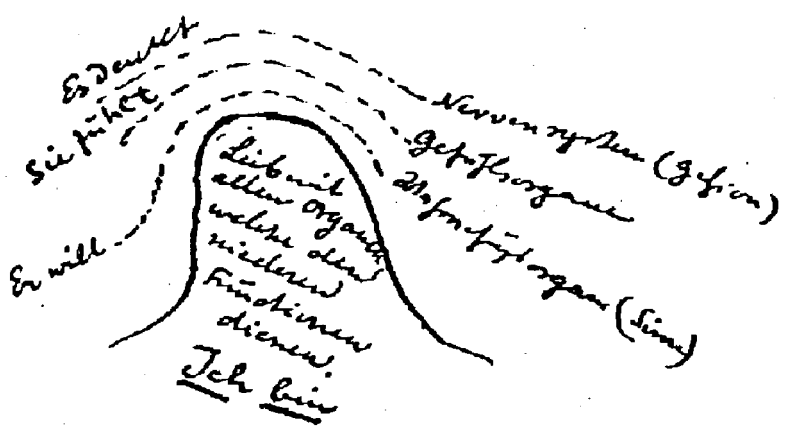 Es denket
Sie fühlt
Er will
Nervensystem (Gehirn)
Gefäßorgane
(Sinne)
Leib mit
allen Organen
welche den
niederen
Funktionen
dienen.
Ich bin